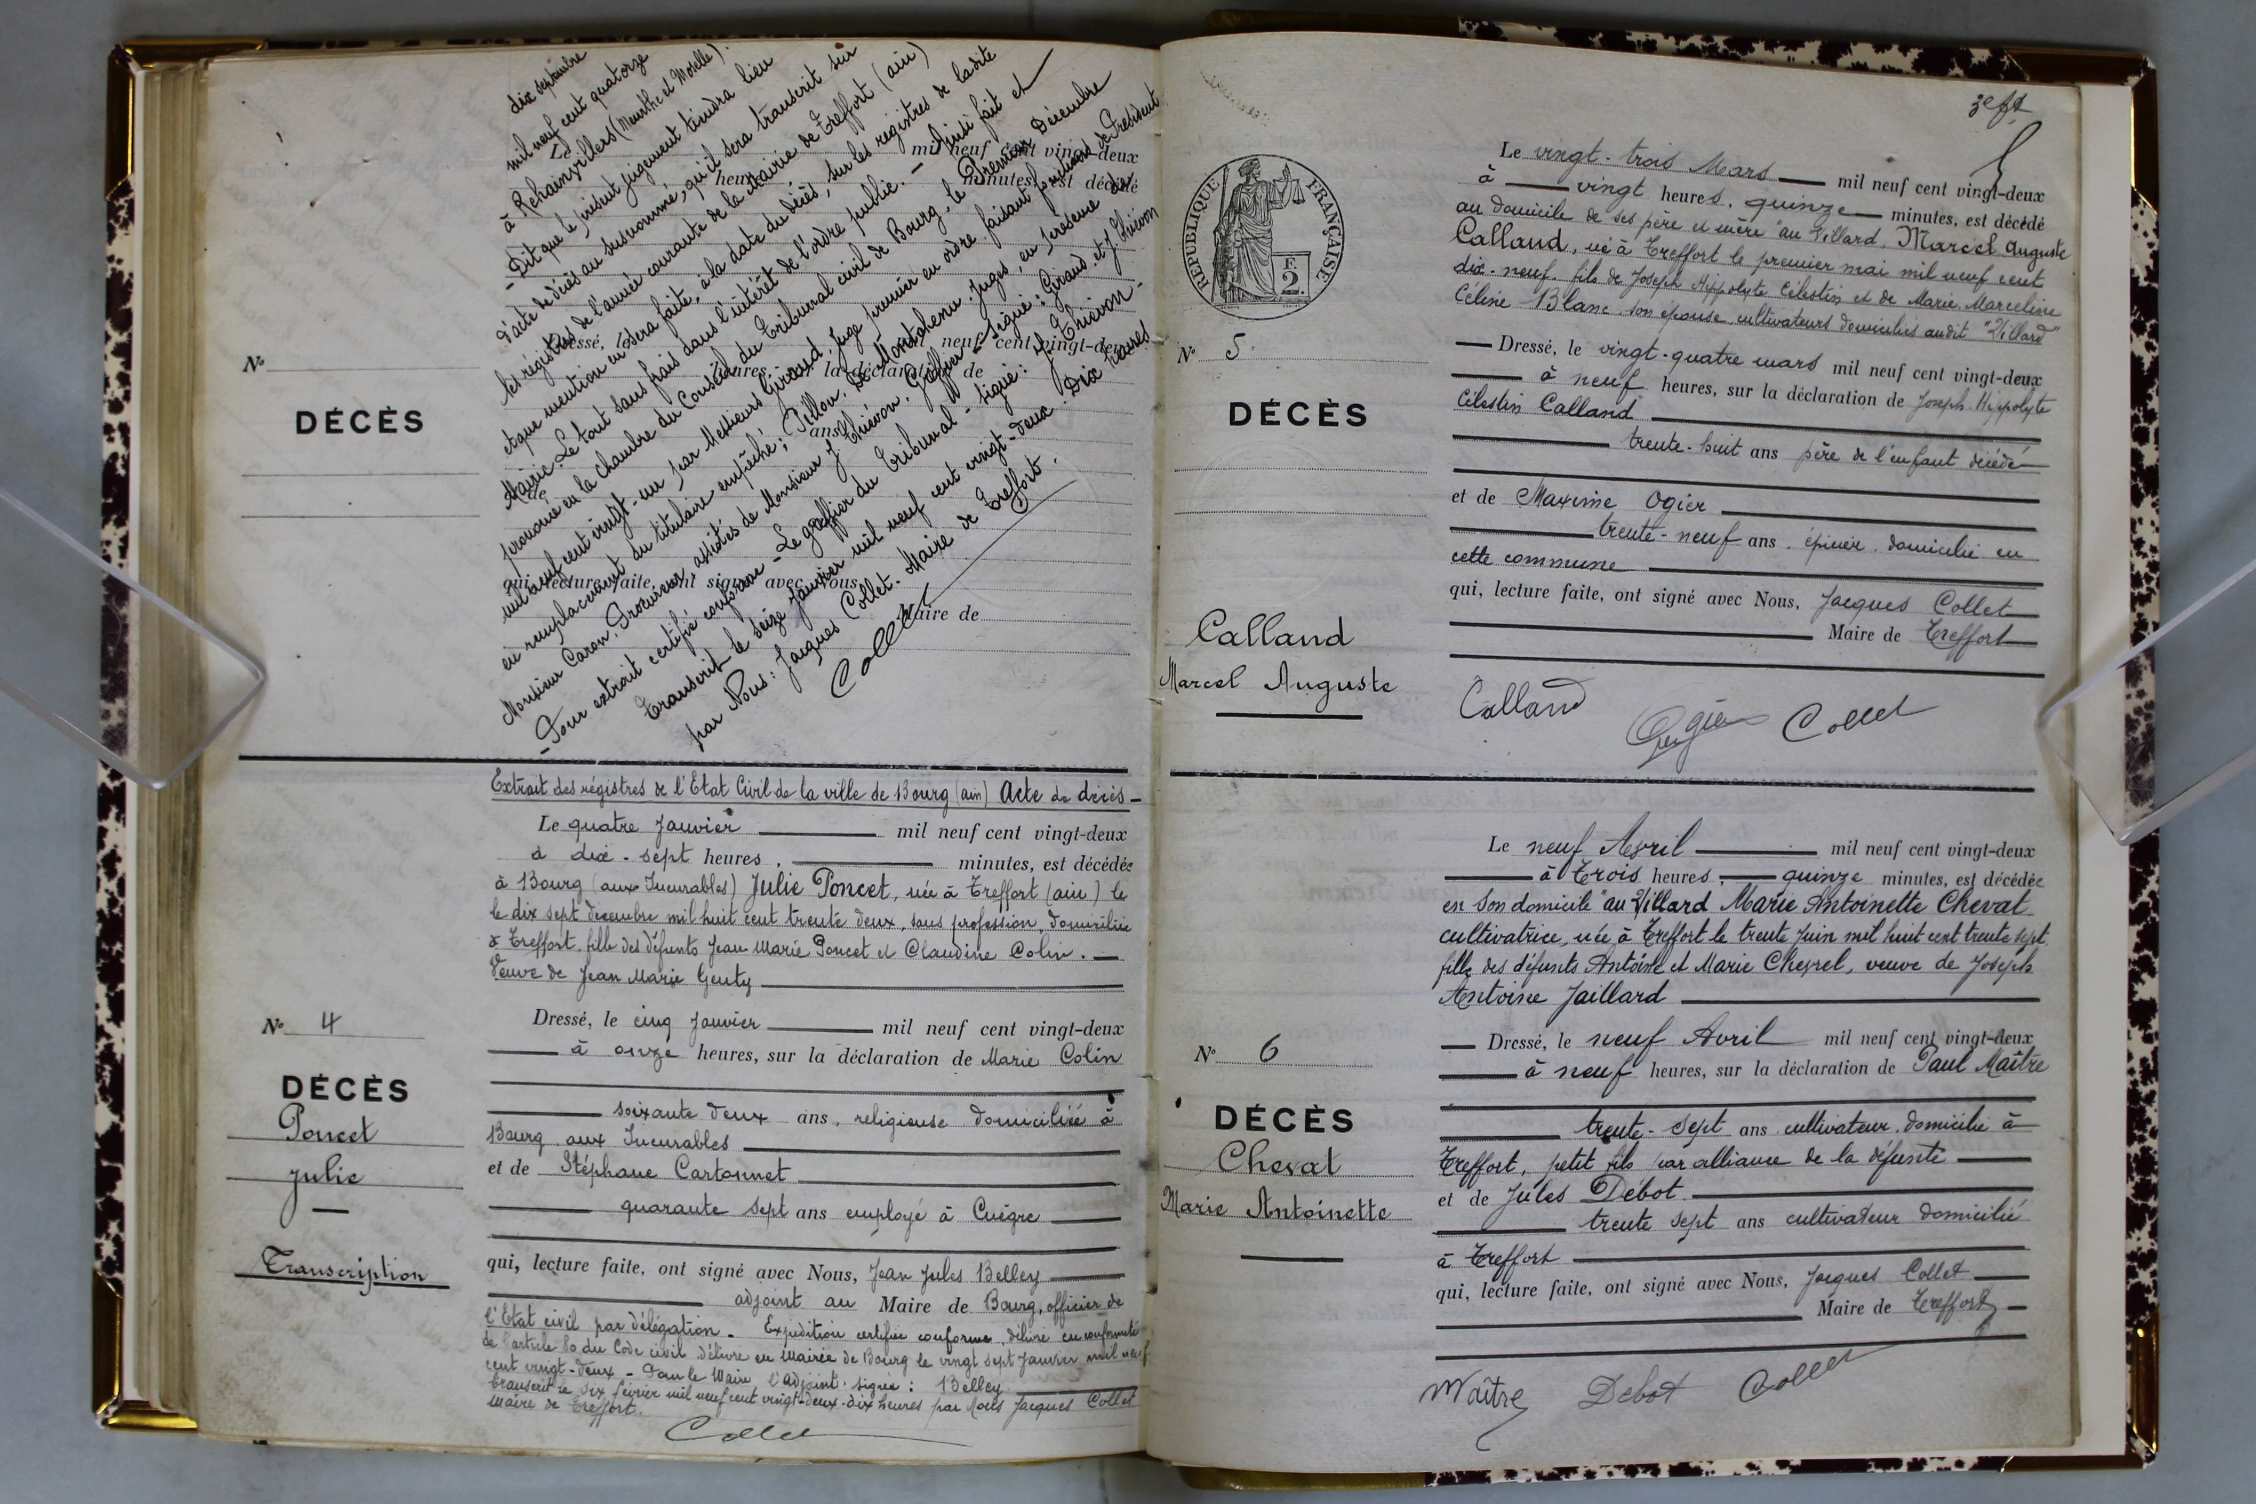 dix septembre
mil neuf cent quatorze
à Rehainvillers (Meurthe et Moselle).
- Dit que le présent jugement tiendra lieu
d'acte de décès au susnommé, qu'il sera transcrit sur
les régistres de l'année courante de la Mairie de Treffort (ain)
et que mention en sera faite, à la date du décès, sur les registres de ladite
Mairie. Le tout sans frais dans l'intérêt de l'ordre public. - Ainsi fait et
prononcé en la chambre du Conseil du Tribunal civil de Bourg, le Premier Décembre
mil neuf cent vingt-un par Messieurs Giraud, Juge premier en ordre faisant fonctions de Président
en remplacement du titulaire empêché; Pillon, De Montahenu, Juges, en présence de
Monsieur Caron, Procureur, assistés de Monsieur J Thiévon, Greffier - Signé: Giraud et J Thiévon
- Pour extrait certifié conforme - Le greffier du Tribunal - signé: J. Thiévon -
Transcrit le seize Janvier mil neuf cent vingt-deux. Dix heures
par Nous: Jacques Collet. Maire de Treffort.
Collet
Le mil neuf cent vingt-deux
heures minutes, est décédé
Dressé, le neuf cent vingt-deux
heures, sur la déclaration de
ans
de
qui, lecture faite, ont signé avec Nous,
Maire de
No
DÉCÈS
Extrait des régistres de l'Etat Civil de la ville de Bourg (ain) Acte de décès -
Le quatre Janvier mil neuf cent vingt-deux
à dix-sept heures, minutes, est décédée
à Bourg (aux Incurables) Julie Poncet, née à Treffort (ain) le
le dix sept decembre mil huit cent trente deux, sans profession, domiciliée
à Treffort, fille des défunts Jean Marie Poncet et Claudine Colin. -
Veuve de Jean Marie Genty
Dressé, le cinq Janvier mil neuf cent vingt-deux
à onze heures, sur la déclaration de Marie Colin
soixante deux ans, religieuse domiciliée à
Bourg aux Incurables
et de Stéphane Cartonnet
quarante sept ans employé à Cuègre
qui, lecture faite, ont signé avec Nous, Jean Jules Belley
adjoint au Maire de Bourg, officier de
l'Etat civil par délégation - Expédition certifiée conforme, délivré en conformité
de l'article 80 du Code civil délivré en Mairie de Bourg le vingt sept Janvier mil neuf
cent vingt-deux - Pour le Maire l'adjoint signé: Belley
Transcrit le six février mil neuf cent vingt-deux. dix heures par Nous Jacques Collet
Maire de Treffort.
Collet
No 4
DÉCÈS
Poncet
Julie
Transcription
3e ft
REPUBLIQUE FRANÇAISE
F.
2.
Le vingt-trois Mars mil neuf cent vingt-deux
à vingt heures, quinze minutes, est décédé
au domicile de ses père et mère "au Villard, Marcel Auguste
Calland, né à Treffort le premier mai mil neuf cent
dix-neuf, fils de Joseph Hippolyte Célestin et de Marie Marceline
Céline Blanc son épouse, cultivateurs domiciliés audit "Villard"
Dressé, le vingt-quatre mars mil neuf cent vingt-deux
à neuf heures, sur la déclaration de Joseph Hippolyte
Célestin Calland
trente-huit ans père de l'enfant décédé
et de Maxime Ogier
trente-neuf ans, épicier, domicilié en
cette commune
qui, lecture faite, ont signé avec Nous, Jacques Collet
Maire de Treffort
Calland Ogier Collet
No 5
DÉCÈS
Calland
Marcel Auguste
Le neuf Avril mil neuf cent vingt-deux
à Trois heures, quinze minutes, est décédée
en son domicile "au Villard Marie Antoinette Chevat
cultivatrice, née à Treffort le trente Juin mil huit cent trente sept
fille des défunts Antoine et Marie Cheyrel, veuve de Joseph
Antoine Jaillard
Dressé, le neuf Avril mil neuf cent vingt-deux
à neuf heures, sur la déclaration de Paul Maître
trente-sept ans cultivateur, domicilié à
Treffort, petit fils par alliance de la défunte
et de Jules Débot
trente sept ans cultivateur domicilié
à Treffort
qui, lecture faite, ont signé avec Nous, Jacques Collet
Maire de Treffort
Maître Debot Collet
No 6
DÉCÈS
Chevat
Marie Antoinette